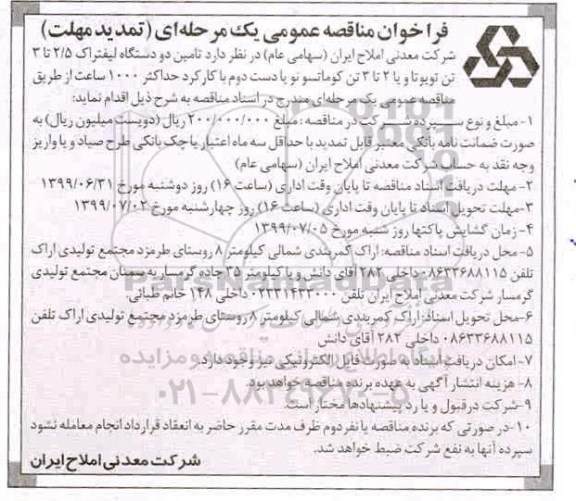 فراخوان مناقصه عمومی یک مرحله‌ای (تمدید مهلت)
شرکت معدنی املاح ایران (سهامی عام) در نظر دارد تامین دو دستگاه لیفتراک ۲/۵ تا ۳
تن تویوتا و یا ۲ تا ۳ تن کوماتسو نو یا دست دوم با کارکرد حداکثر ۱۰۰۰ ساعت از طریق
مناقصه عمومی یک مرحله‌ای مندرج در اسناد مناقصه به شرح ذیل اقدام نماید:
۱- مبلغ و نوع سپرده شرکت در مناقصه: مبلغ ۲۰۰/۰۰۰/۰۰۰ ریال (دویست میلیون ریال) به
صورت ضمانت نامه بانکی معتبر قابل تمدید با حداقل سه ماه اعتبار یا چک بانکی طرح صیاد و یا واریز
وجه نقد به حساب شرکت معدنی املاح ایران (سهامی عام)
۲- مهلت دریافت اسناد مناقصه تا پایان وقت اداری (ساعت ۱۶) روز دوشنبه مورخ ۱۳۹۹/۰۶/۳۱
۳- مهلت تحویل اسناد تا پایان وقت اداری (ساعت ۱۶) روز چهارشنبه مورخ ۱۳۹۹/۰۷/۰۲
۴- زمان گشایش پاکتها روز شنبه مورخ ۱۳۹۹/۰۷/۰۵
۵- محل دریافت اسناد مناقصه: اراک کمربندی شمالی کیلومتر ۸ روستای طرمزد مجتمع تولیدی اراک
تلفن ۰۸۶۳۳۶۸۸۱۱۵ داخلی ۲۸۲ آقای دانش و یا کیلومتر ۳۵ جاده گرمسار به سمنان مجتمع تولیدی
گرمسار شرکت معدنی املاح ایران تلفن ۰۲۳۳۱۴۳۳۰۰۰ داخلی ۱۴۸ خانم طبائی.
۶- محل تحویل اسناد: اراک کمربندی شمالی کیلومتر ۸ روستای طرمزد مجتمع تولیدی اراک تلفن
۰۸۶۳۳۶۸۸۱۱۵ داخلی ۲۸۲ آقای دانش
۷- امکان دریافت اسناد به صورت فایل الکترونیکی نیز وجود دارد.
۸- هزینه انتشار آگهی به عهده برنده مناقصه خواهد بود.
۹- شرکت در قبول و یا رد پیشنهادها مختار است.
۱۰- در صورتی که برنده مناقصه یا نفر دوم ظرف مدت مقرر حاضر به انعقاد قرارداد انجام معامله نشود
سپرده آنها به نفع شرکت ضبط خواهد شد.
شرکت معدنی املاح ایران
ParsNamadData
۰۲۱-۸۸۳۴۹۶۷۰-۵